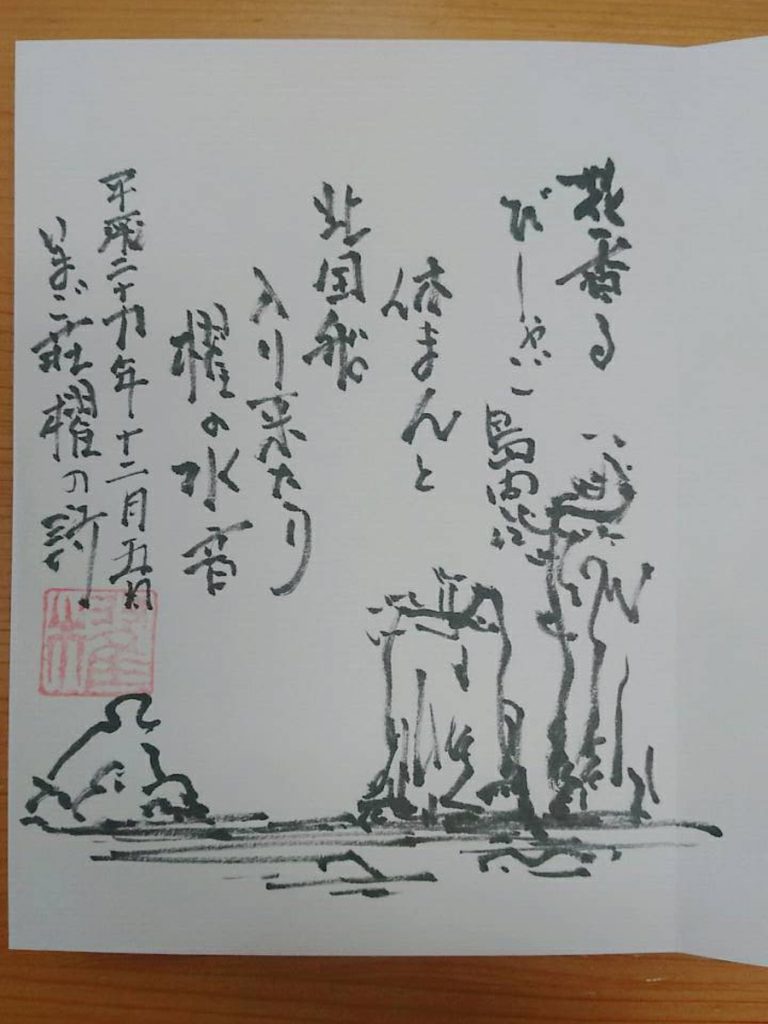 花香る
びしゃご島内に
休まんと
北国船
入り来たり
櫂の水音
平成二十九年十二月五日
いまご荘櫂の詩
櫂